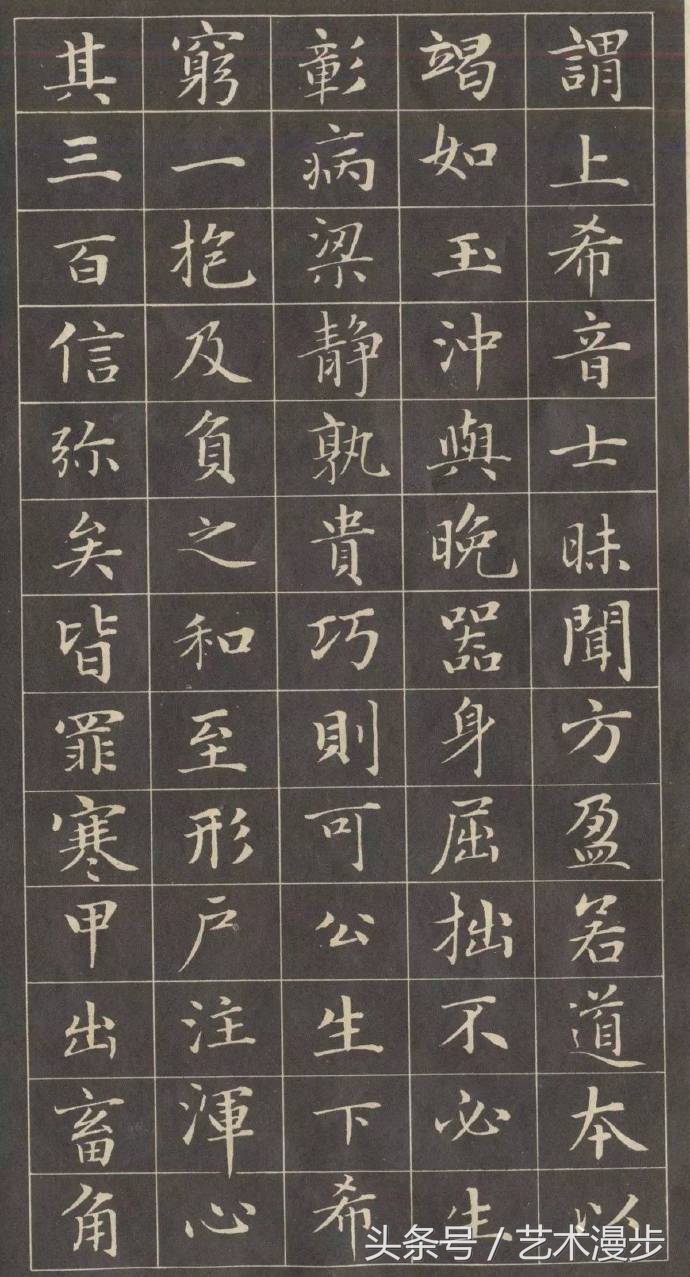 謂上希音士昧聞方盈若道本以
竭如玉沖與晚器身屈拙不必生
彰病梁静孰貴巧則可公生下希
窮一抱及負之和至形戶注渾心
其三百信弥矣皆罪寒甲出畜角
头条号 / 艺术漫步